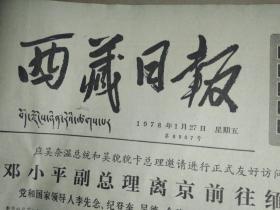 西藏日报
1978年1月27日 星期五
应吴奈温总统和吴貌貌卡总理邀请进行正式友好访问
邓小平副总理离京前往缅
党和国家领导人李先念、纪登奎、